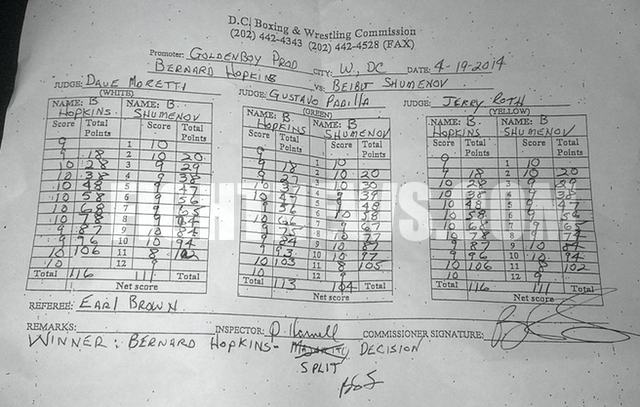 D.C. Boxing & Wrestling Commission
(202) 442-4343 (202) 442-4528 (FAX)
Promoter: GOLDENBOY PROD CITY: W, DC DATE: 4-19-2014
BERNARD HOPKINS VS: BEIBUT SHUMENOV
JUDGE: DAVE MORETTI JUDGE: GUSTAVO PADILLA JUDGE: JERRY ROTH
(WHITE) (GREEN) (YELLOW)
NAME: B HOPKINS NAME: B. SHUMENOV
Score Total Points Score Total Points
9 1 10
9 18 2 10 20
10 28 3 9 29
10 38 4 9 38
10 48 5 9 47
10 58 6 9 56
10 68 7 9 65
10 78 8 9
9 87 9 10 84
9 96 10 10 94
10 106 11 8 102
10 12 9
Total 116 111 Total
Net score
NAME: B HOPKINS NAME: B. SHUMENOV
Score Total Points Score Total Points
9 1 10
9 18 2 10 20
9 27 3 10 30
10 37 4 9 39
5 9
6 10 58
7 9 67
8
9 10 87
93 10 10 97
10 103 11 8 105
10 12 9
Total 113 104 Total
Net score
NAME: B HOPKINS NAME: B SHUMENOV
Score Total Points Score Total Points
9 1 10
9 18 2 10 20
10 28 3 9
10 38 4 9 38
10 48 5 9 47
10 58 6 9 56
10 68 7 9 65
10 78 8 9
9 87 9 10 84
9 96 10 10 94
10 106 11 8 102
10 12 9
Total 116 111 Total
Net score
REFEREE: EARL BROWN
REMARKS: INSPECTOR: COMMISSIONER SIGNATURE:
WINNER: BERNARD HOPKINS- MAJORITY DECISION
SPLIT